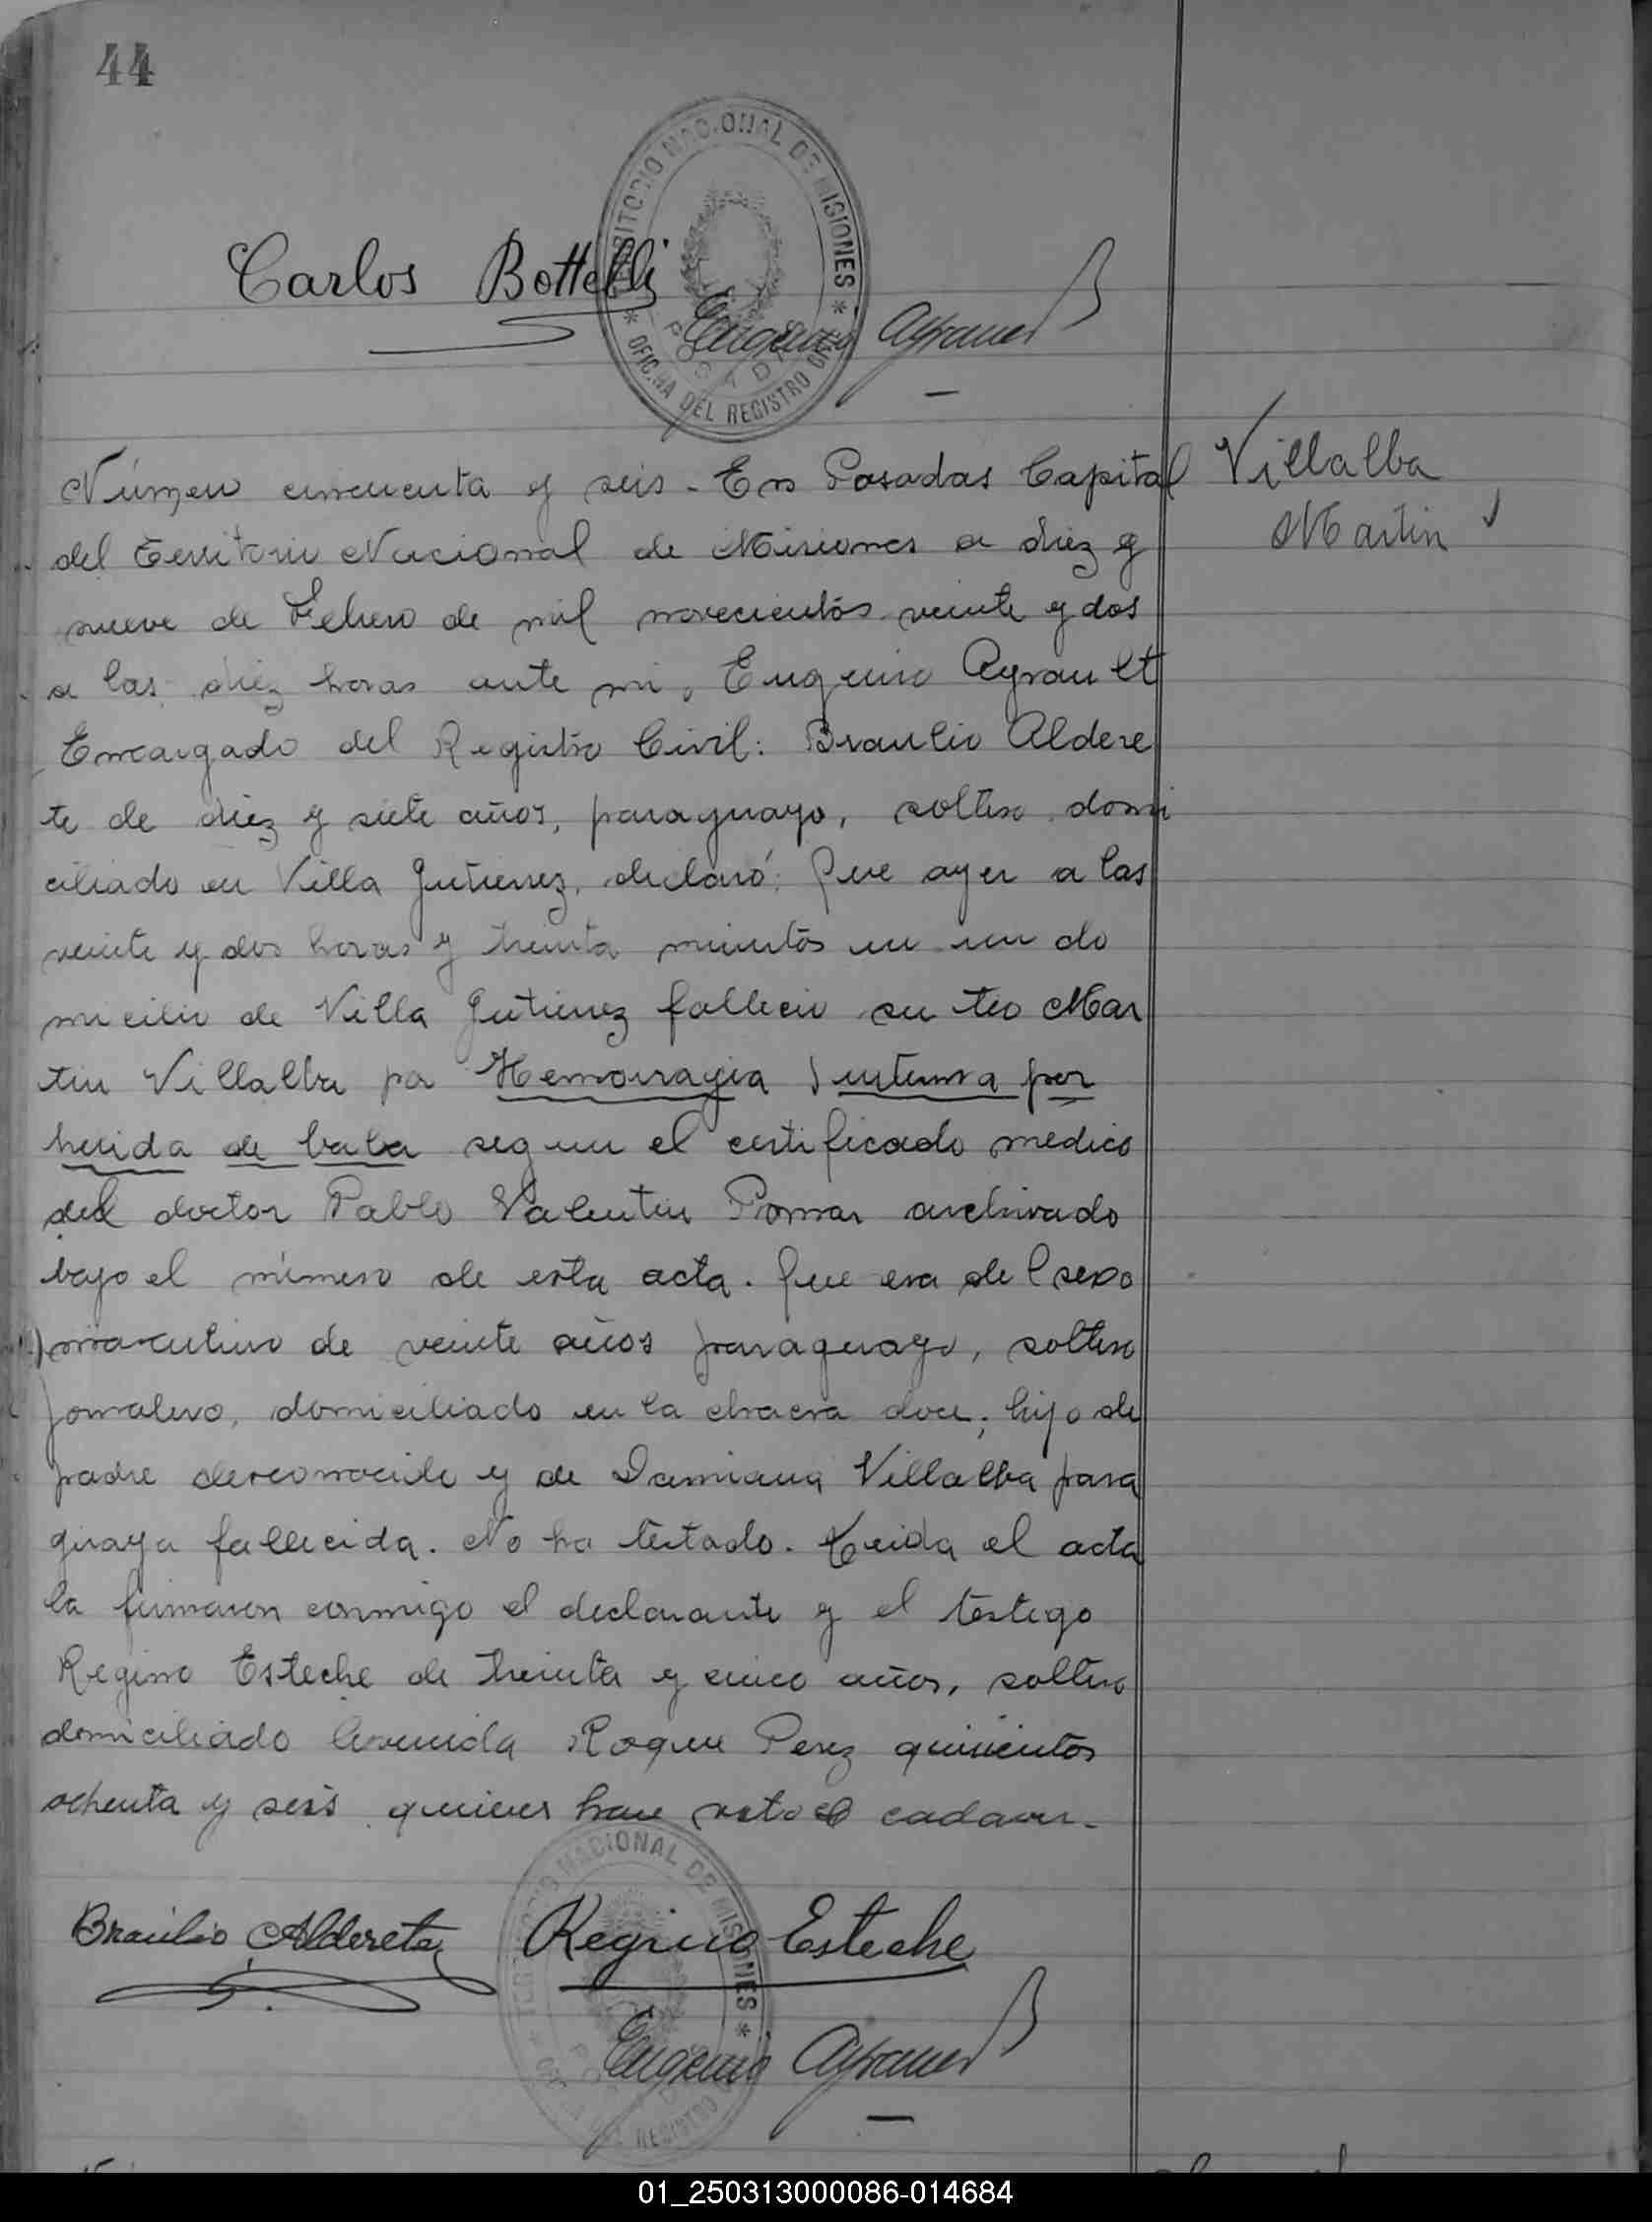 44
TERRITORIO NACIONAL DE MISIONES
Carlos Bottelli
POSADAS
* OFICINA DEL REGISTRO CIVIL *
Eugenio Ayrault
Número cincuenta y seis - En Posadas Capital
Villalba
Martin
del Territorio Nacional de Misiones a diez y
nueve de Febrero de mil novecientos veinte y dos
a las diez horas ante mi, Eugenio Ayrault
Encargado del Registro Civil: Braulio Aldere
te de diez y siete años, paraguayo, soltero domi
ciliado en Villa Gutierrez, declaró: Que ayer a las
veinte y dos horas y treinta minutos en un do
micilio de Villa Gutierrez fallecio su tio Mar
tin Villalba por Hemorragia interna por
herida de bala segun el certificado medico
del doctor Pablo Valentin Pomar archivado
bajo el número de esta acta. Que era del sexo
masculino de veinte años paraguayo, soltero
jornalero, domiciliado en la chacra doce; hijo de
padre desconocido y de Damiana Villalba para
guaya fallecida. No ha testado. Leida el acta
la firmaron conmigo el declarante y el testigo
Regino Esteche de treinta y cinco años, soltero
domiciliado Avenida Roque Perez quinientos
ochenta y seis quienes han visto el cadaver.
TERRITORIO NACIONAL DE MISIONES
Braulio Alderete
Regino Esteche
Eugenio Ayrault
REGISTRO
01_250313000086-014684